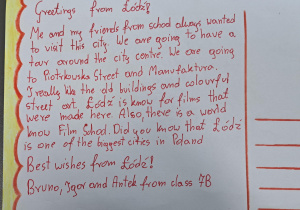 Greetings from Łódź!
Me and my friends from school always wanted
to visit this city. We are going to have a
tour around the city centre. We are going
to Piotrkowska Street and Manufaktura.
I really like the old buildings and colourful
street art. Łódź is know for films that
were made here. Also, there is a world
know Film School. Did you know that Łódź
is one of the biggest cities in Poland
Best wishes from Łódź!
Bruno, Igor and Antek from class 7B